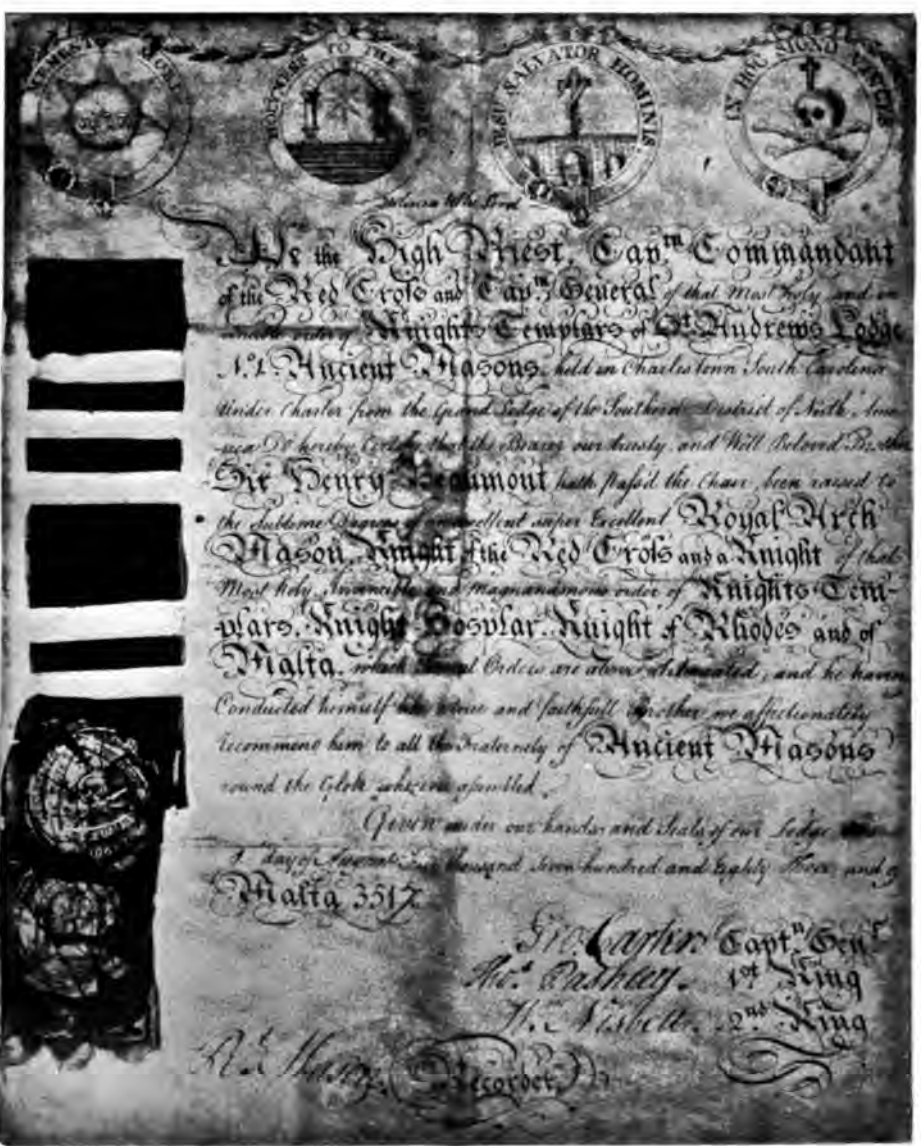 MEMENTO MORI
HOLINESS TO THE
JESU SALVATOR HOMINIS
IN HOC SIGNO VINCES
to the Lord
We the High Priest, Capn. Commandant
of the Red Cross and Capn. General of that Most Holy and in
order of Knights Templars of St. Andrews Lodge
No. 1. Ancient Masons, held in Charlestown South Carolina
Under Charter from the Grand Lodge of the Southern District of North Ame
rica Do hereby Certify that the Bearer our trusty and Well Beloved Brother
Sir Henry Beaumont hath pass'd the Chair, been raised to
the Sublime Degrees of an excellent super Excellent Royal Arch
Mason, Knight of the Red Cross and a Knight of that
Most Holy, Invincible and Magnanimous order of Knights Tem-
plars, Knight Hosplar, Knight of Rhodes and of
Malta, which several Orders are above delineated, and he having
Conducted himself like a true and faithfull Brother we affectionately
recommend him to all the Fraternity of Ancient Masons
round the Globe wherever assembled.
Given under our hands and Seals of our Lodge
1 day of thousand Seven hundred and Eighty Three and of
Malta 3517
Geo. Carter Captn Genl
Thos. Pashley. 1st King
Nisbett. 2nd King
Recorder